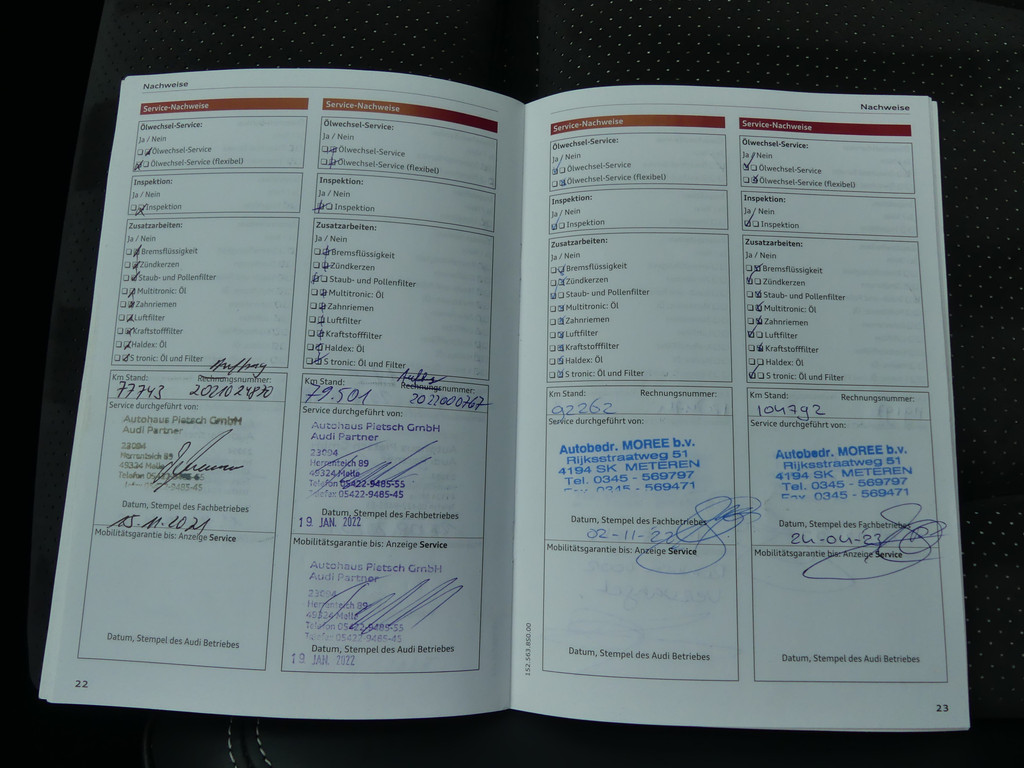 Nachweise
Service-Nachweise
Ölwechsel-Service:
Ja / Nein
Ölwechsel-Service
Ölwechsel-Service (flexibel)
Inspektion:
Ja / Nein
Inspektion
Zusatzarbeiten:
Ja / Nein
Bremsflüssigkeit
Zündkerzen
Staub- und Pollenfilter
Multitronic: Öl
Zahnriemen
Luftfilter
Kraftstofffilter
Haldex: Öl
S tronic: Öl und Filter
Auftrag
Km Stand: Rechnungsnummer:
77743
Service durchgeführt von:
Autohaus Pietsch GmbH
Audi Partner
23094
Herrenteich 89
49324 Melle
Telefon 05422-9485-55
-9485-45
Datum, Stempel des Fachbetriebes
15.11.2021
Mobilitätsgarantie bis: Anzeige Service
Datum, Stempel des Audi Betriebes
22
Service-Nachweise
Ölwechsel-Service:
Ja / Nein
Ölwechsel-Service
Ölwechsel-Service (flexibel)
Inspektion:
Ja / Nein
Inspektion
Zusatzarbeiten:
Ja / Nein
Bremsflüssigkeit
Zündkerzen
Staub- und Pollenfilter
Multitronic: Öl
Zahnriemen
Luftfilter
Kraftstofffilter
Haldex: Öl
S tronic: Öl und Filter
Km Stand: Rechnungsnummer:
79.501 2022000767
Service durchgeführt von:
Autohaus Pietsch GmbH
Audi Partner
23094
Herrenteich 89
49324 Melle
Telefon 05422-9485-55
Telefax 05422-9485-45
Datum, Stempel des Fachbetriebes
19. JAN. 2022
Mobilitätsgarantie bis: Anzeige Service
Autohaus Pietsch GmbH
Audi Partner
23094
Herrenteich 89
49324 Melle
Telefon 05422-9485-55
Telefax 05422-9485-45
Datum, Stempel des Audi Betriebes
19. JAN. 2022
Nachweise
Service-Nachweise
Ölwechsel-Service:
Ja / Nein
Ölwechsel-Service
Ölwechsel-Service (flexibel)
Inspektion:
Ja / Nein
Inspektion
Zusatzarbeiten:
Ja / Nein
Bremsflüssigkeit
Zündkerzen
Staub- und Pollenfilter
Multitronic: Öl
Zahnriemen
Luftfilter
Kraftstofffilter
Haldex: Öl
S tronic: Öl und Filter
Km Stand: Rechnungsnummer:
92262
Service durchgeführt von:
Autobedr. MOREE b.v.
Rijksstraatweg 51
4194 SK METEREN
Tel. 0345 - 569797
Fax 0345 - 569471
Datum, Stempel des Fachbetriebes
02-11-22
Mobilitätsgarantie bis: Anzeige Service
Datum, Stempel des Audi Betriebes
152.563.850.00
Service-Nachweise
Ölwechsel-Service:
Ja / Nein
Ölwechsel-Service
Ölwechsel-Service (flexibel)
Inspektion:
Ja / Nein
Inspektion
Zusatzarbeiten:
Ja / Nein
Bremsflüssigkeit
Zündkerzen
Staub- und Pollenfilter
Multitronic: Öl
Zahnriemen
Luftfilter
Kraftstofffilter
Haldex: Öl
S tronic: Öl und Filter
Km Stand: Rechnungsnummer:
104792
Service durchgeführt von:
Autobedr. MOREE b.v.
Rijksstraatweg 51
4194 SK METEREN
Tel. 0345 - 569797
Fax 0345 - 569471
Datum, Stempel des Fachbetriebes
24-04-23
Mobilitätsgarantie bis: Anzeige Service
Datum, Stempel des Audi Betriebes
23